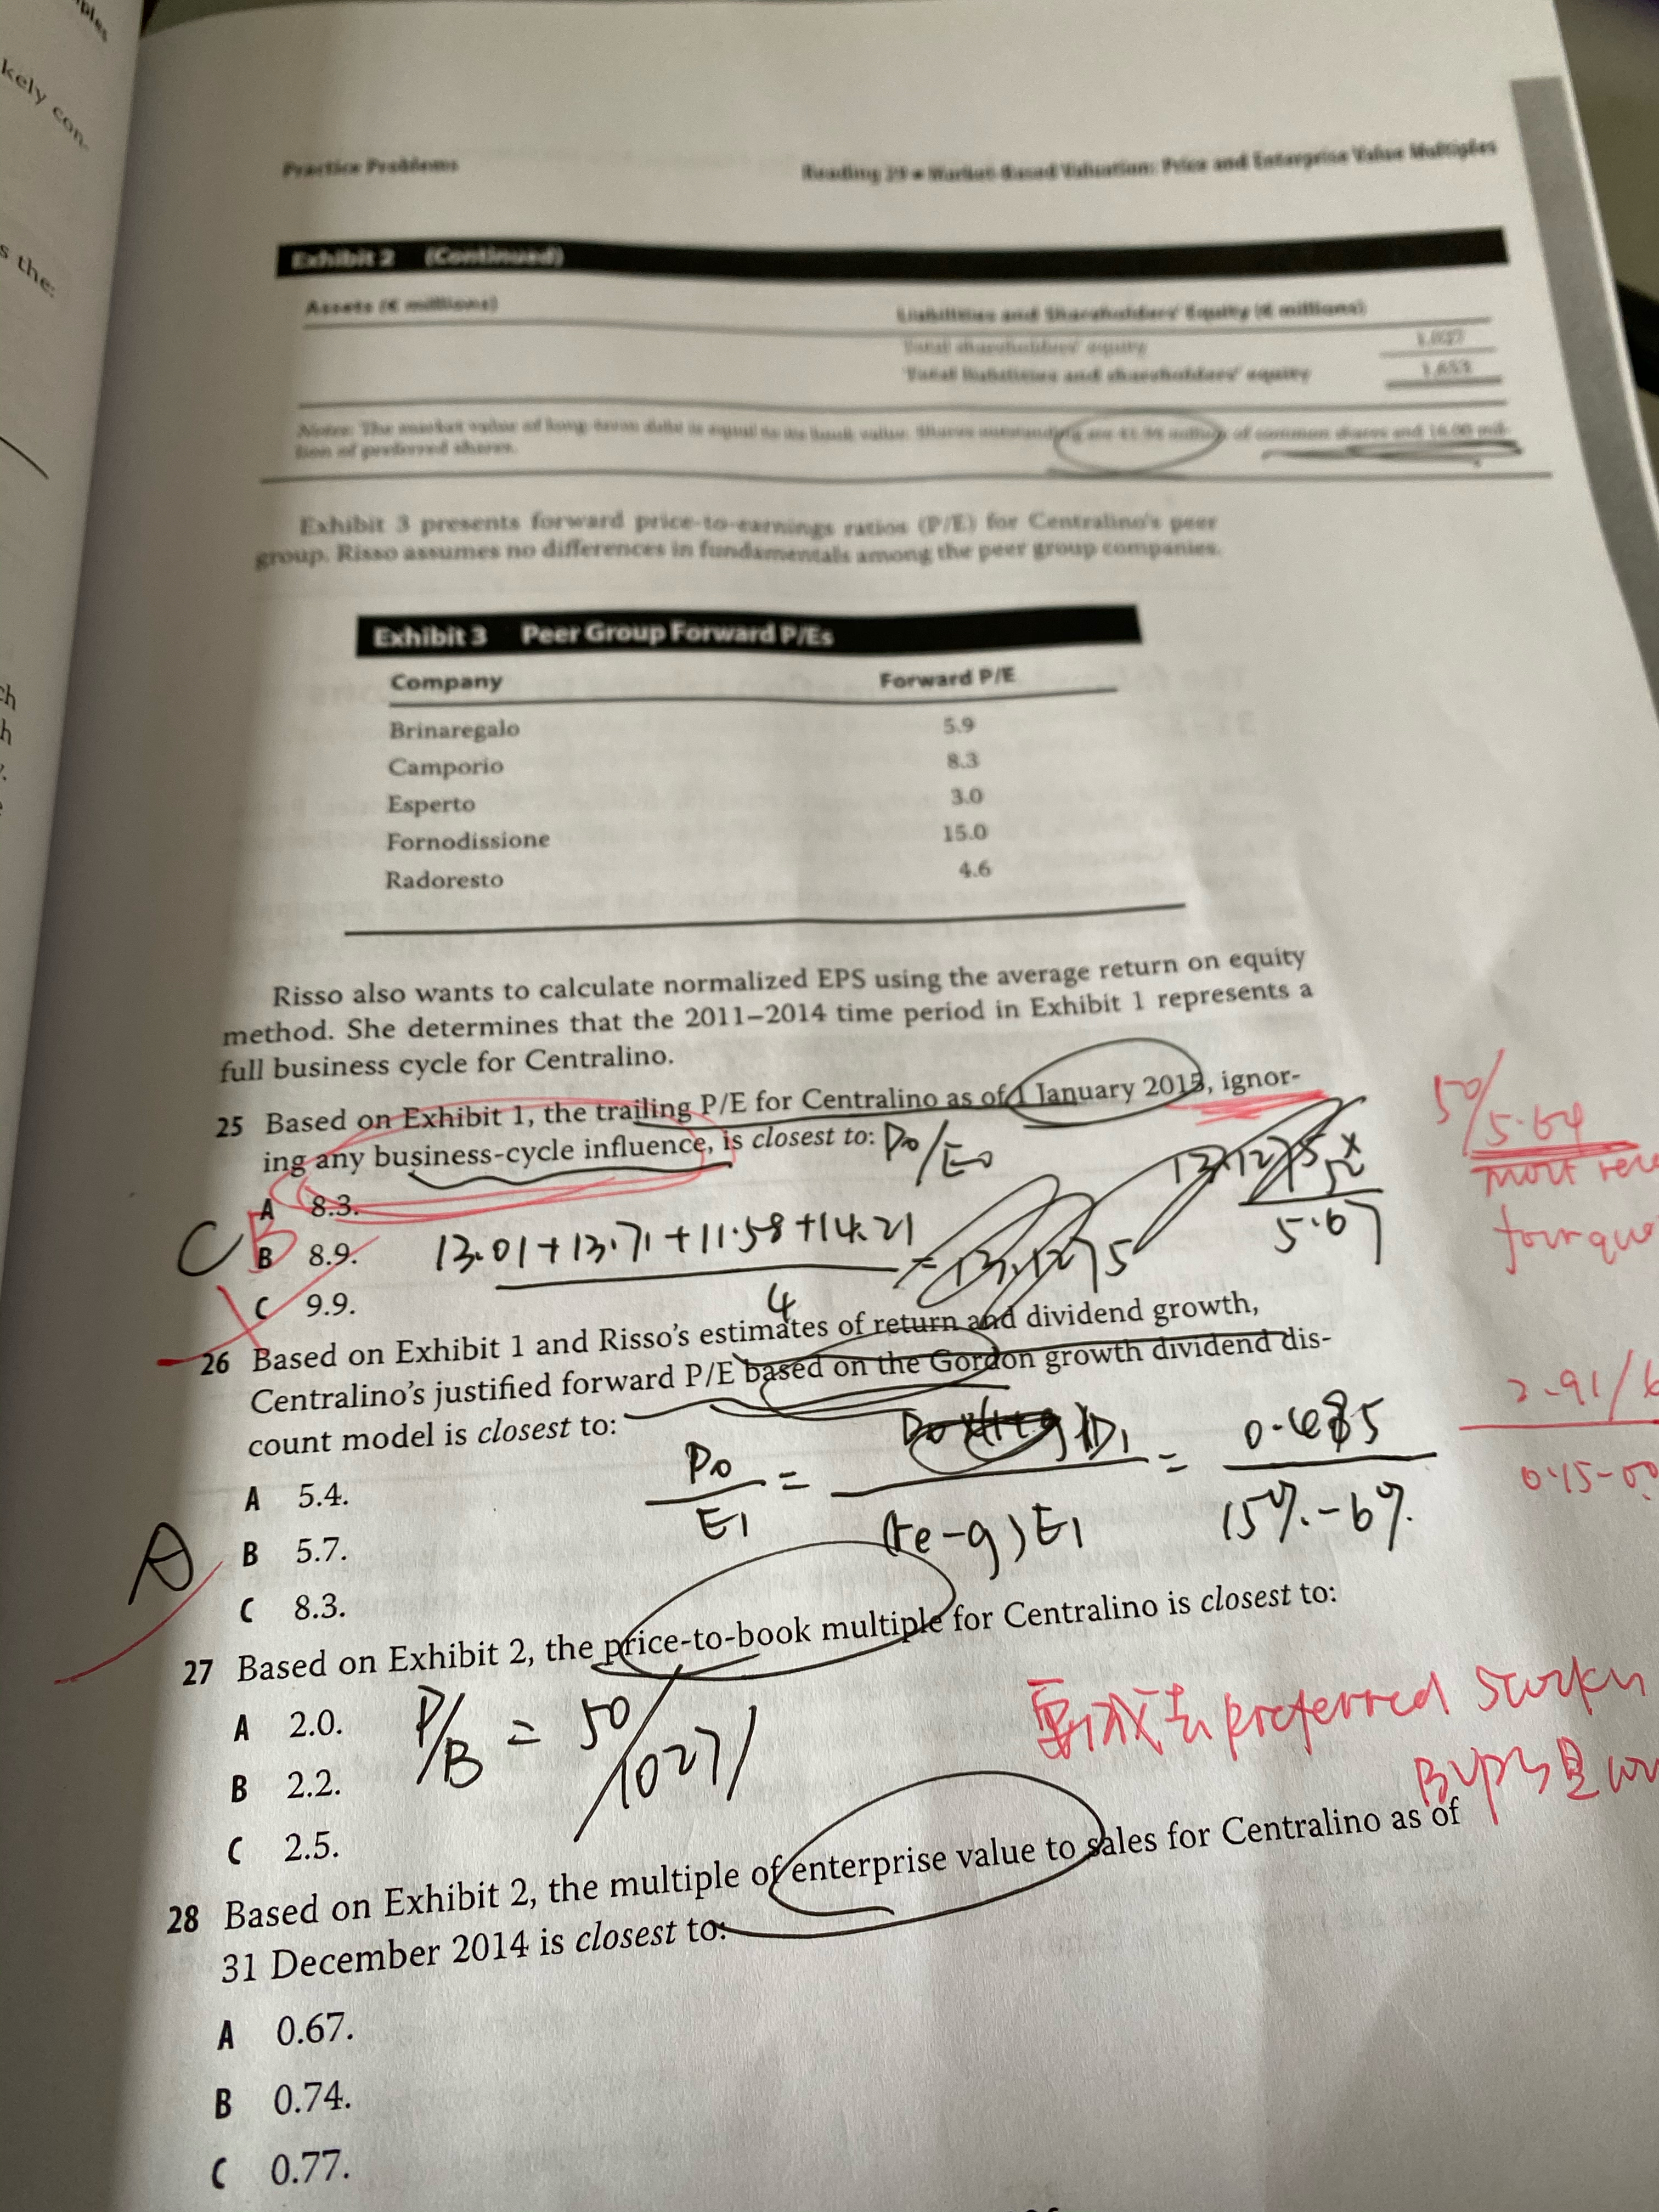 ples
kely con-
s the:
ch
h
Practice Problems
Reading 29 • Market-Based Valuation: Price and Enterprise Value Multiples
Exhibit 2 (Continued)
Assets (€ millions)
Liabilities and Shareholders' Equity (€ millions)
Total shareholders' equity 1,027
Total liabilities and shareholders' equity 1,653
Notes: The market value of long-term debt is equal to its book value. Shares outstanding are 41.94 million of common shares and 16.00 mil-
lion of preferred shares.
Exhibit 3 presents forward price-to-earnings ratios (P/E) for Centralino's peer
group. Risso assumes no differences in fundamentals among the peer group companies.
Exhibit 3 Peer Group Forward P/Es
Company Forward P/E
Brinaregalo 5.9
Camporio 8.3
Esperto 3.0
Fornodissione 15.0
Radoresto 4.6
Risso also wants to calculate normalized EPS using the average return on equity
method. She determines that the 2011–2014 time period in Exhibit 1 represents a
full business cycle for Centralino.
25 Based on Exhibit 1, the trailing P/E for Centralino as of 1 January 2015, ignor-
ing any business-cycle influence, is closest to: P0/E0
50/5.64
most
four
A 8.3.
C B
B 8.9.
13.01+13.71+11.58+14.21
4
= 13.1275
5.67
C 9.9.
26 Based on Exhibit 1 and Risso's estimates of return and dividend growth,
Centralino's justified forward P/E based on the Gordon growth dividend dis-
count model is closest to:
P0/E1 = D1/(re-g)E1 = 0.485/15%-6%
2.91/6
0.15-0.0
A 5.4.
A
B 5.7.
C 8.3.
27 Based on Exhibit 2, the price-to-book multiple for Centralino is closest to:
A 2.0.
P/B = 50/1027/
要减去preferred
B 2.2.
BVPS是
C 2.5.
28 Based on Exhibit 2, the multiple of enterprise value to sales for Centralino as of
31 December 2014 is closest to:
A 0.67.
B 0.74.
C 0.77.